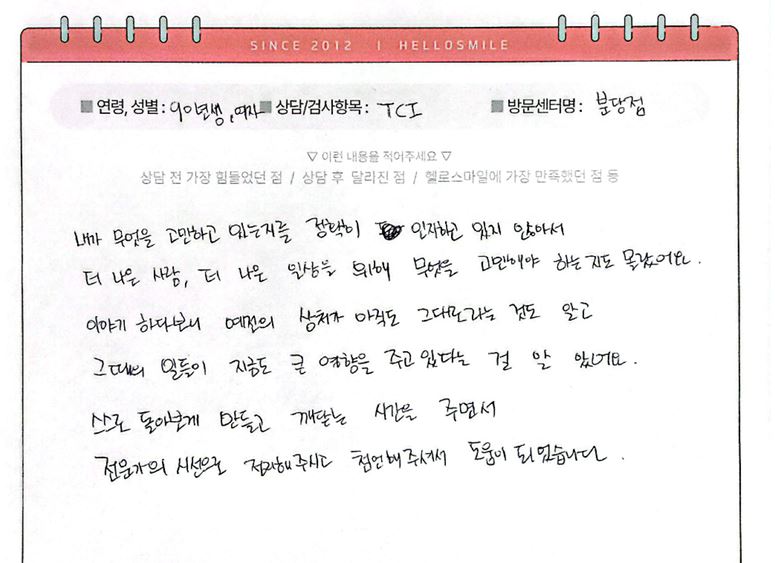 SINCE 2012 | HELLOSMILE
■ 연령, 성별 : 90년생, 여자 ■ 상담/검사항목 : TCI ■ 방문센터명 : 분당점
▽ 이런 내용을 적어주세요 ▽
상담 전 가장 힘들었던 점 / 상담 후 달라진 점 / 헬로스마일에 가장 만족했던 점 등
내가 무엇을 고민하고 있는지를 정확이 인지하고 있지 않아서
더 나은 사람, 더 나은 일상을 위해 무엇을 고민해야 하는지도 몰랐어요.
이야기 하다보니 예전의 상처가 아직도 그대로라는 것도 알고
그때의 일들이 지금도 큰 영향을 주고 있다는 걸 알 았어요.
스스로 돌아보게 만들고 깨닫는 시간을 주면서
전문가의 시선으로 정리해주시고 첨언해주셔서 도움이 되었습니다.